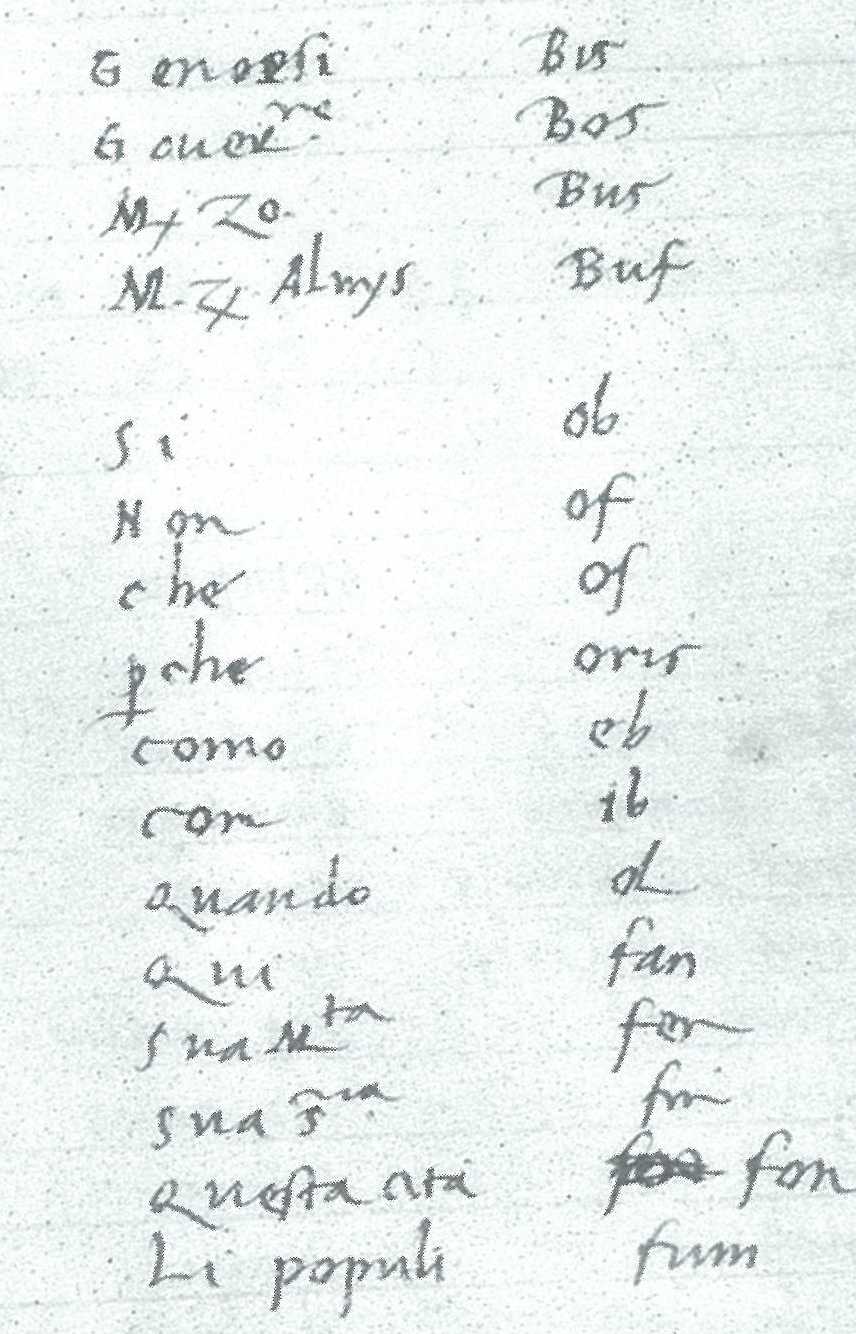 Genoesi Bis
Gouer^re Bos
M. Zo. Bus
M. Z. Almys Buf
Si ob
Non of
che os
pche oris
como eb
com ib
quando ol
Qui fan
sua M^ta fer
sua S^ria fin
Questa cita fon
Li populi fum